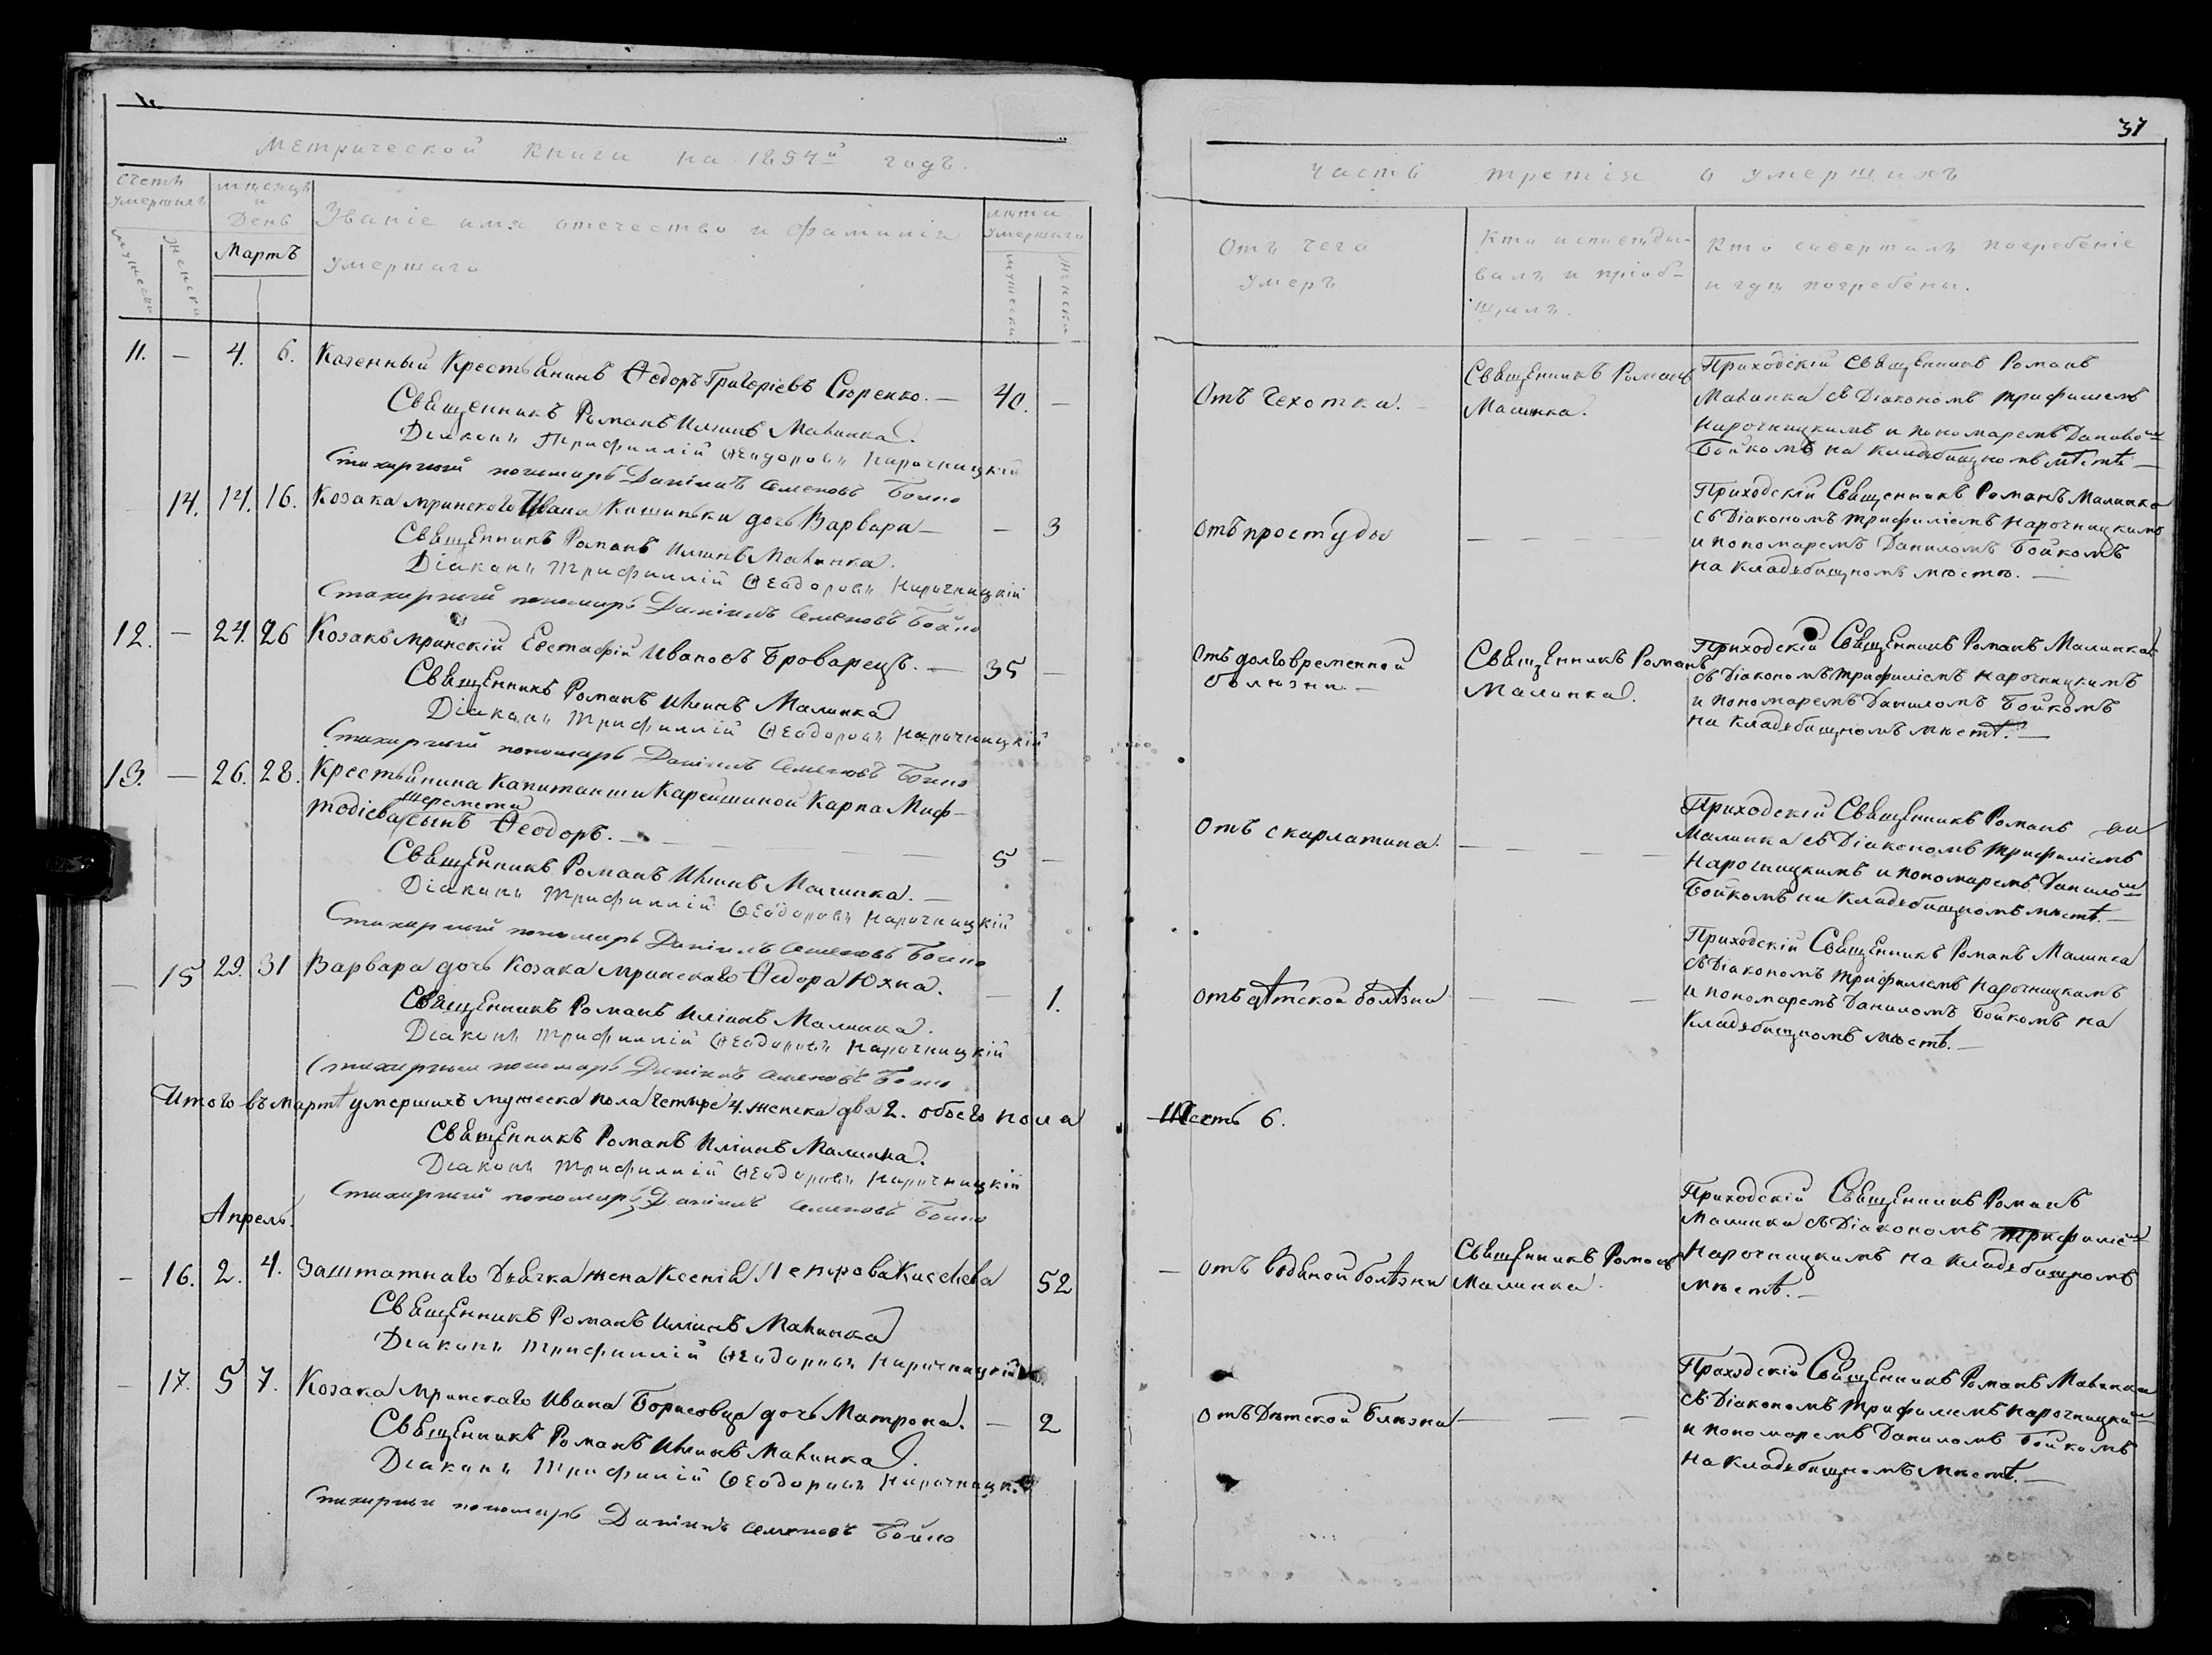 Метрической книги на 1854й годъ.
Счетъ умершихъ
мѣсяцъ и День
Званіе имя отечество и фамилія умершаго
лѣта умершаго
мужески
женски
Мартъ
мужески
женски
11. — 4. 6. Казенный Крестьянинъ Ѳедоръ Григоріевъ Сюренко. — 40. —
Священникъ Романъ Иліинъ Малинка.
Діаконъ Трифиллій Ѳеодоровъ Нарочницкій
Стихарный пономарь Даніилъ Семеновъ Бойко
14. 14. 16. Козака мринского Ивана дочь Варвара — — 3
Священникъ Романъ Иліинъ Малинка.
Діаконъ Трифиллій Ѳеодоровъ Нарочницкій
Стихарный пономарь Даніилъ Семеновъ Бойко
12. — 24. 26 Козакъ мринскій Евстафій Ивановъ Броварецъ. — 35 —
Священникъ Романъ Иліинъ Малинка
Діаконъ Трифиллій Ѳеодоровъ Нарочницкій
Стихарный пономарь Даніилъ Семеновъ Бойко
13. — 26. 28. Крестьянина Капитанши Карпа Миф-
тодіева Шеремети сынъ Ѳеодоръ. — 5 —
Священникъ Романъ Иліинъ Малинка. —
Діаконъ Трифиллій Ѳеодоровъ Нарочницкій
Стихарный пономарь Даніилъ Семеновъ Бойко
— 15 29. 31 Варвара дочь Козака мринскаго Ѳедора Юхна. — 1.
Священникъ Романъ Иліинъ Малинка.
Діаконъ Трифиллій Ѳеодоровъ Нарочницкій
Стихарный пономарь Даніилъ Семеновъ Бойко
Итого въ мартѣ умершихъ мужеска пола четыре 4. женска два 2. обоего пола
Священникъ Романъ Иліинъ Малинка.
Діаконъ Трифиллій Ѳеодоровъ Нарочницкій
Стихарный пономарь Даніилъ Семеновъ Бойко
Апрель.
— 16. 2. 4. Заштатнаго Дьячка жена Ксенія Петрова Киселева 52
Священникъ Романъ Иліинъ Малинка
Діаконъ Трифиллій Ѳеодоровъ Нарочницкій
— 17. 5 7. Козака мринскаго Ивана Борисовца дочь Матрона. — 2
Священникъ Романъ Иліинъ Малинка.
Діаконъ Трифилій Ѳеодоровъ Нарочницкій
Стихарный пономарь Даніилъ Семеновъ Бойко
37
Часть третія о умершихъ
Отъ чего умеръ
Кто исповѣды-
валъ и пріоб-
щалъ.
Кто совершалъ погребеніе
и гдѣ погребены.
Отъ Чехотка. —
Священникъ Романъ
Малинка.
Приходскій Священникъ Романъ
Малинка съ Діакономъ Трифиліемъ
Нарочницкимъ и пономаремъ Данилом
Бойкомъ на кладебищномъ мѣстѣ —
Отъ простуды — — — —
Приходскій Священникъ Романъ Малинка
съ Діакономъ Трифиліемъ Нарочницкимъ
и пономаремъ Даниломъ Бойкомъ
на Кладебищномъ мѣстѣ. —
Отъ долговременной
болѣзни —
Священникъ Романъ
Малинка.
Приходскій Священникъ Романъ Малинка
съ Діакономъ Трифиліемъ Нарочницкимъ
и пономаремъ Даниломъ Бойкомъ
на Кладебищномъ мѣстѣ. —
Отъ скарлатина. — — — —
Приходскій Священникъ Романъ
Малинка съ Діакономъ Трифиліемъ
Нарочницкимъ и пономаремъ Данилом
Бойкомъ на Кладебищномъ мѣстѣ. —
Отъ дѣтской болѣзни — — —
Приходскій Священникъ Романъ Малинка
съ Діакономъ Трифиліемъ Нарочницкимъ
и пономаремъ Даниломъ Бойкомъ на
Кладебищномъ мѣстѣ. —
Шесть 6.
— Отъ водяной болѣзни
Священникъ Романъ
Малинка.
Приходскій Священникъ Романъ
Малинка съ Діакономъ Трифиліем
Нарочницкимъ на кладебищномъ
мѣстѣ. —
Отъ Дѣтской Блѣзни — — — —
Приходскій Священникъ Романъ Малинка
съ Діакономъ Трифиліемъ Нарочницким
и пономаремъ Даниломъ Бойкомъ
на Кладебищномъ мѣстѣ. —